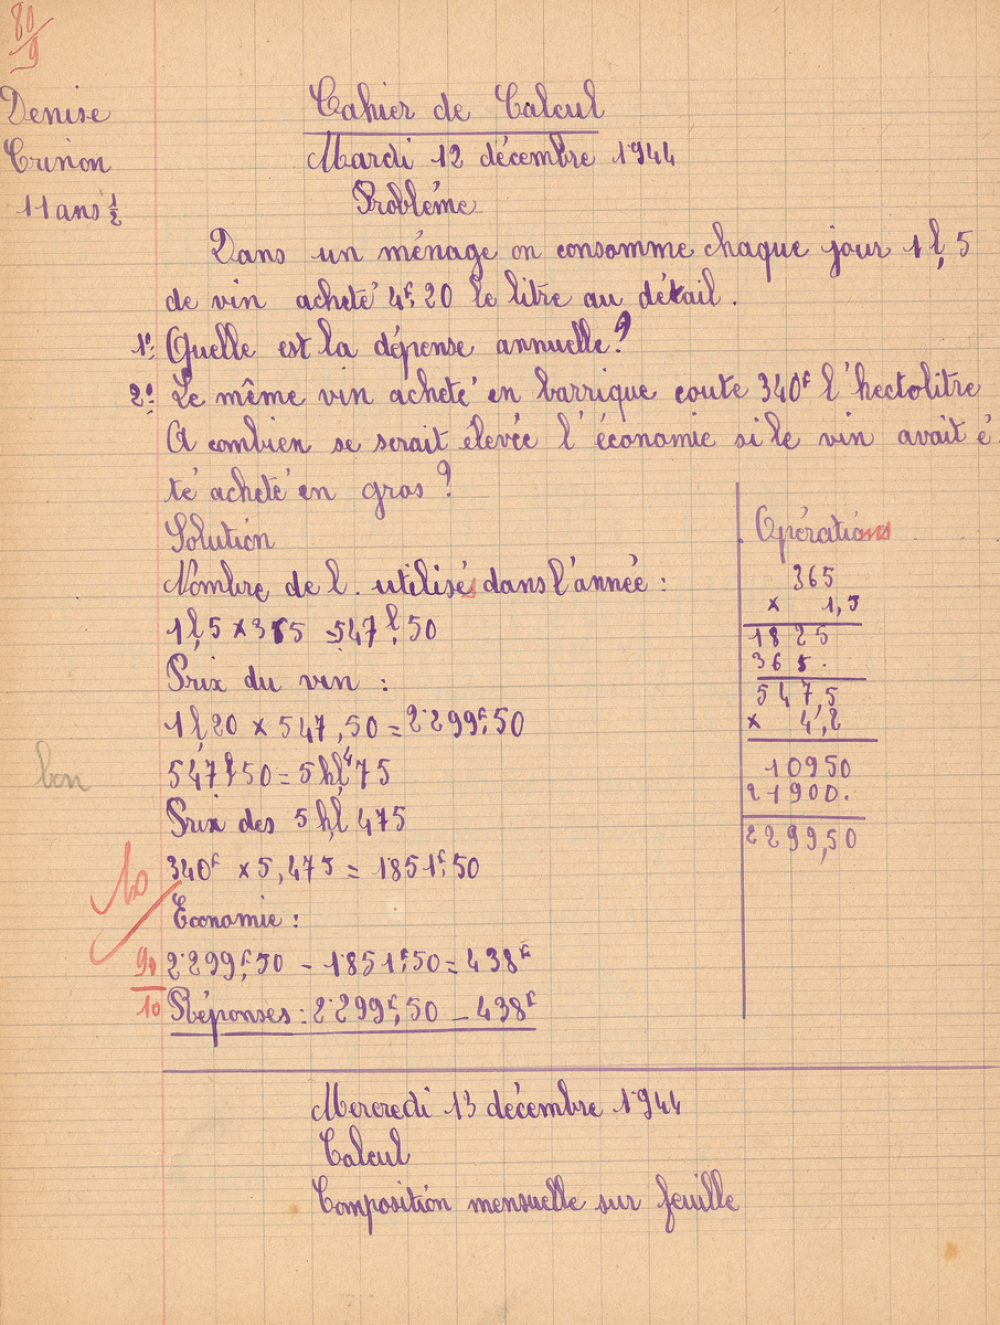 80/9
Denise
Crinon
11 ans 1/2
Cahier de Calcul
Mardi 12 décembre 1944
Problème
Dans un ménage on consomme chaque jour 1l,5
de vin acheté 4f,20 le litre au détail.
1º: Quelle est la dépense annuelle?
2º: Le même vin acheté en barrique coute 340f l'hectolitre
A combien se serait élevée l'économie si le vin avait é
té acheté en gros?
Solution
Nombre de l. utilisés dans l'année:
1l,5 × 365 = 547l,50
Prix du vin:
1l,20 × 547,50 = 2299f,50
547l50 = 5hl,475
Prix des 5hl,475
340f × 5,475 = 1851f,50
Economie:
2299f,50 - 1851f,50 = 438f
Réponses: 2299f,50 _ 438f
bon
10
9/10
Opérations
365
× 1,5
1825
365.
547,5
× 4,2
10950
21900.
2299,50
Mercredi 13 décembre 1944
Calcul
Composition mensuelle sur feuille